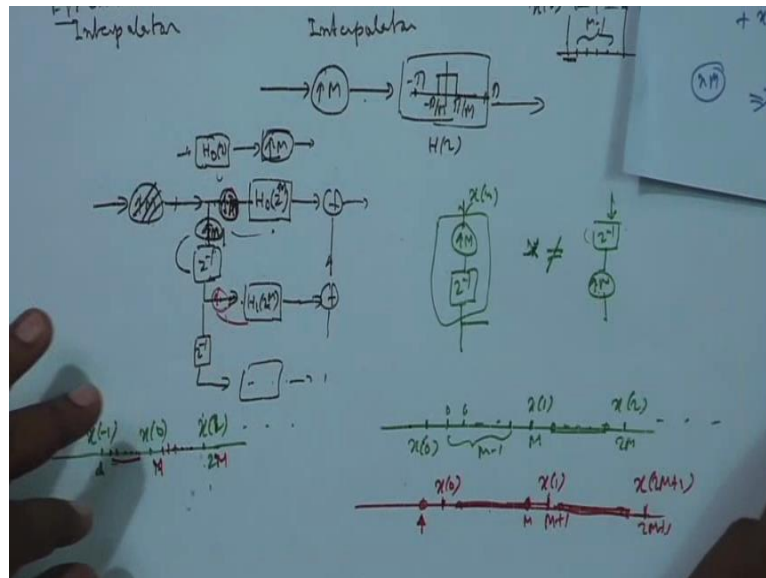 Interpolator
Interpolator
M-1
+ x
↑M
↑M
-π π
-π/M π/M
H(z)
H₀(z) ↑M
↑M ↑M H₀(z^M) +
↑M
z⁻¹
H₁(z^M) +
z⁻¹
x(n)
↑M
z⁻¹
≠
z⁻¹
↑M
x(-1) x(0) . . . .
M 2M
0 0 x(1) x(2) . . .
x(0) M-1 M 2M
x(0) x(1) x(2M+1)
M M+1 2M+1